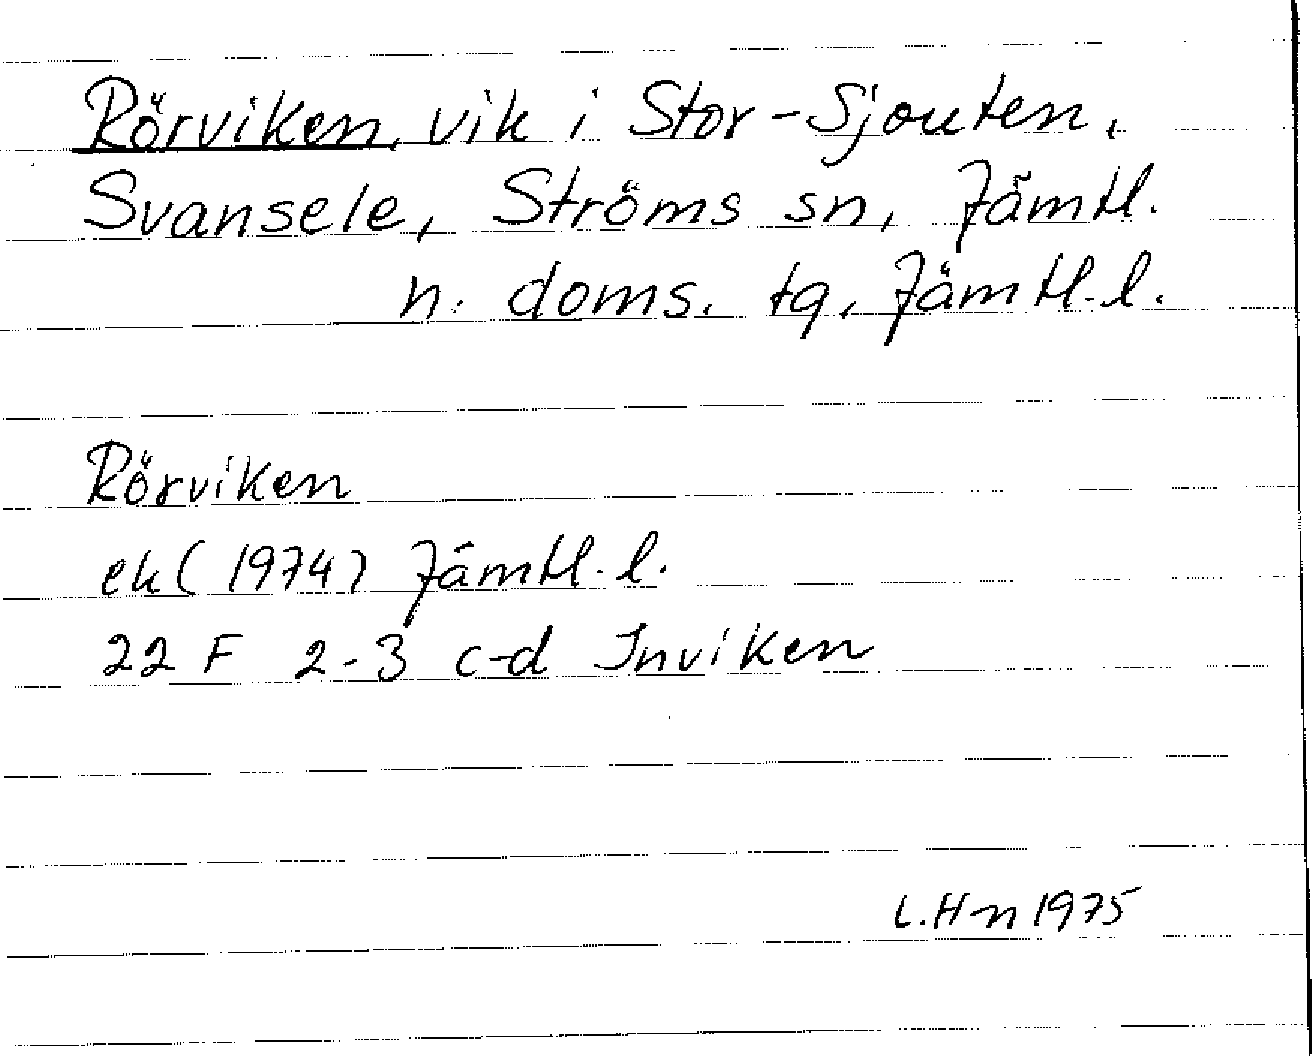 Rörviken, vik i Stor-Sjouten,
Svansele, Ströms sn, Jämtl.
n. doms. tg, Jämtl. l.
Rörviken
ek (1974) Jämtl. l.
22 F 2-3 c-d Inviken
L. Hn 1975